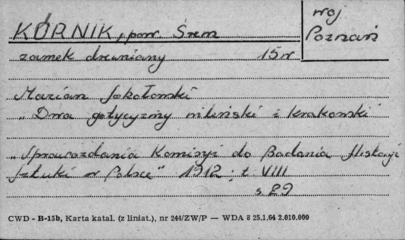 KÓRNIK, pow. Śrem
woj
Poznań
zamek drewniany 15 w
Marian Sokołowski
"Dwa gotycyzmy wileński i krakowski
"Sprawozdania Komisyi do Badania Historji
Sztuki w Polsce" 1912, t. VIII
s. 29
CWD - B-15b, Karta katal. (z liniat.), nr 244/ZW/P — WDA 8 25.1.64 2.010.000